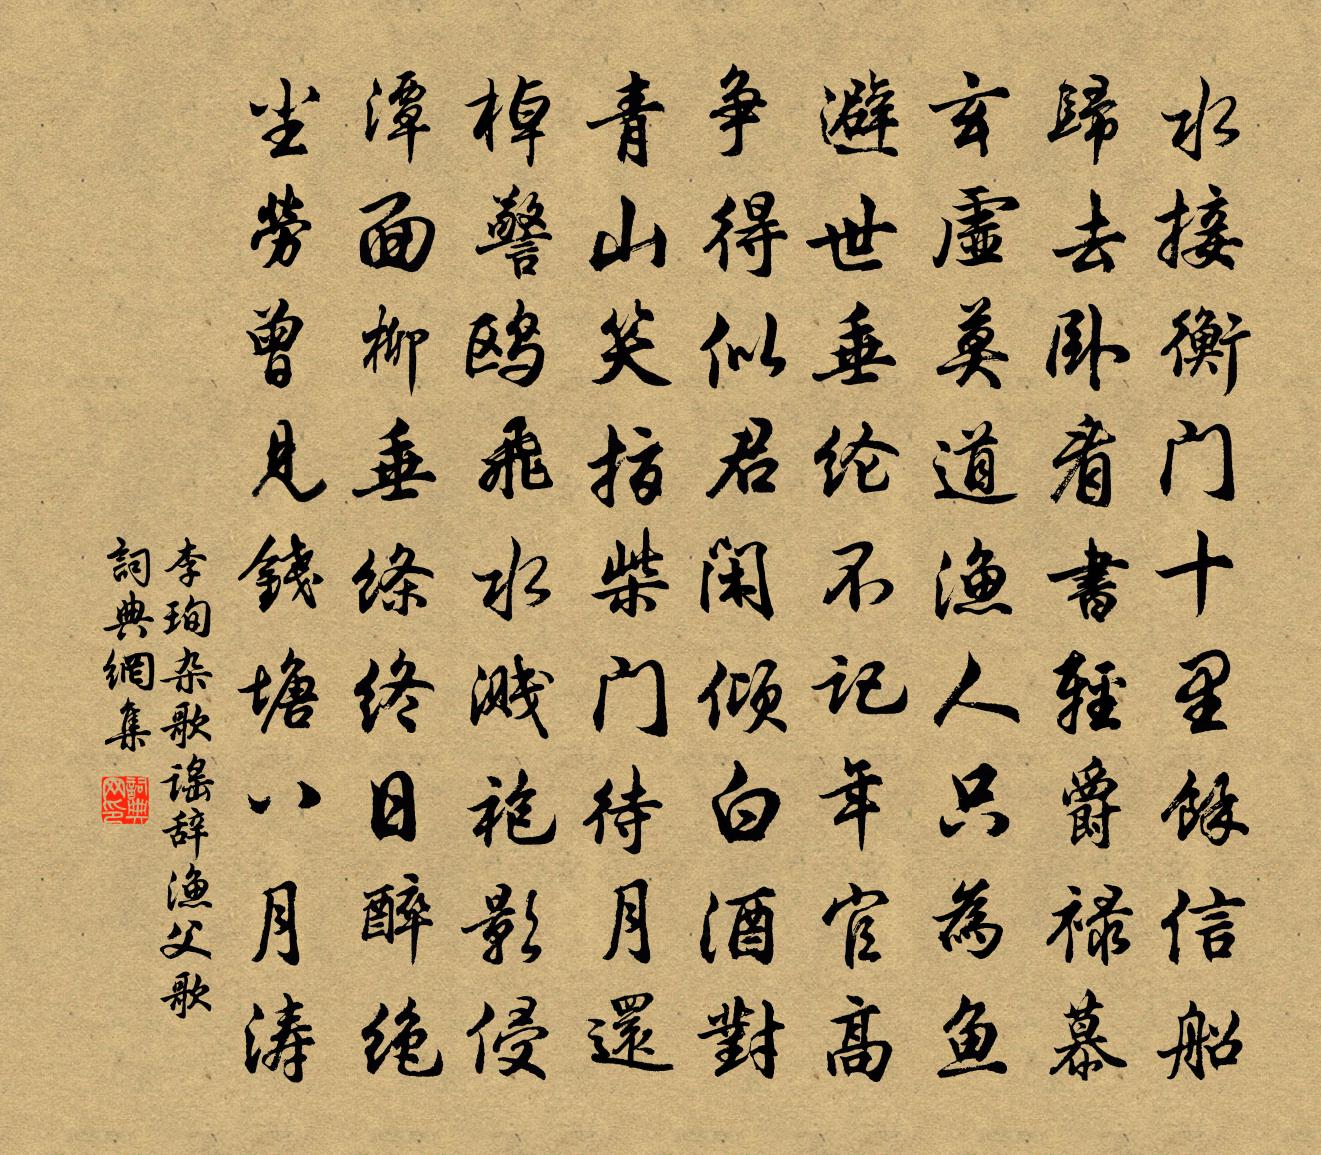 水接衡门十里馀信船
歸去卧看書輕爵禄慕
玄虚莫道漁人只為魚
避世垂纶不记年官高
争得似君闲倾白酒對
青山笑指柴门待月還
棹警鸥飛水溅袍影侵
潭面柳垂绦终日醉绝
尘劳曾见錢塘八月涛
李珣杂歌谣辞漁父歌
詞典網集
詞典网印